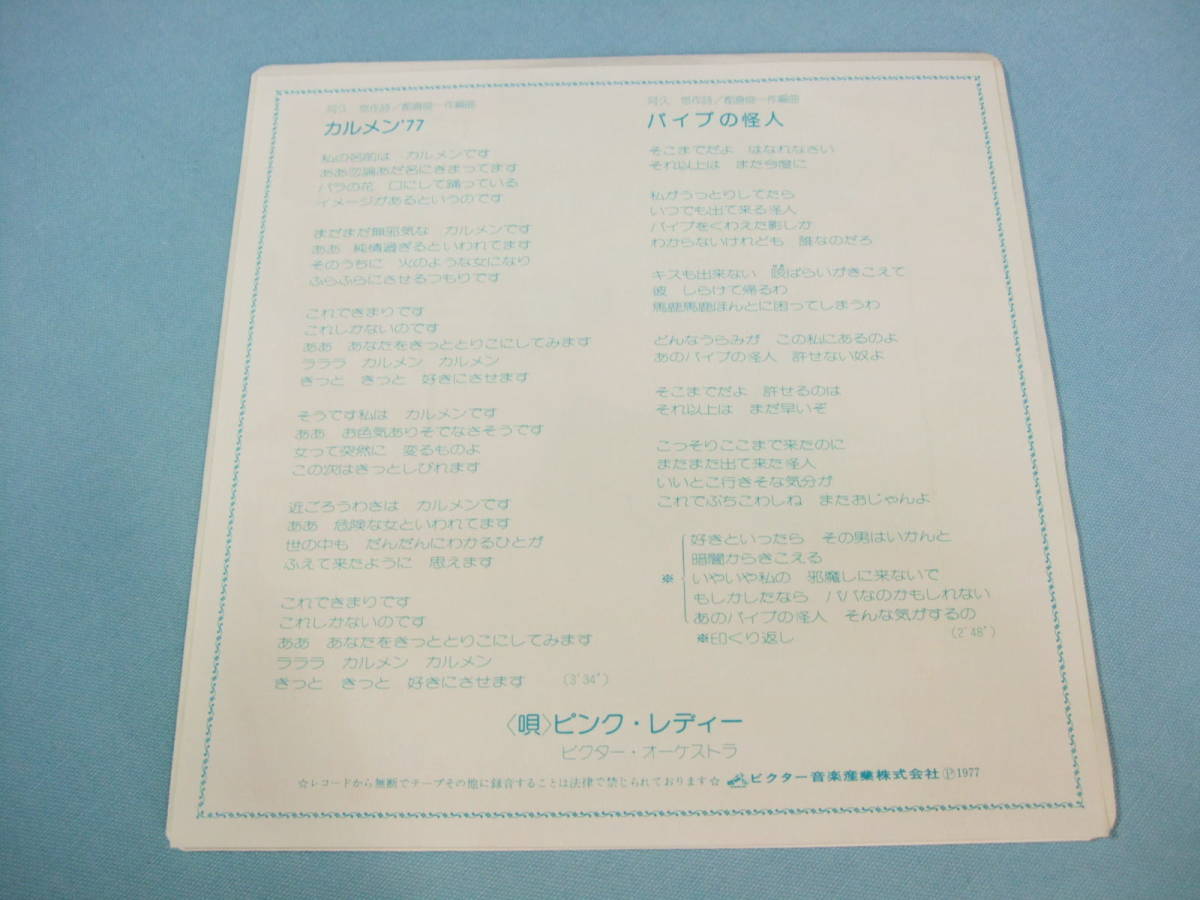 阿久 悠作詩/都倉俊一作編曲
カルメン'77
私の名前は カルメンです
ああ勿論あだ名にきまってます
バラの花 口にして踊っている
イメージがあるというのです
まだまだ無邪気な カルメンです
ああ 純情過ぎるといわれてます
そのうちに 火のような女になり
ふらふらにさせるつもりです
これできまりです
これしかないのです
ああ あなたをきっととりこにしてみます
ラララ カルメン カルメン
きっと きっと 好きにさせます
そうです私は カルメンです
ああ お色気ありそでなさそうです
女って突然に 変るものよ
この次はきっとしびれます
近ごろうわきは カルメンです
ああ 危険な女といわれてます
世の中も だんだんにわかるひとが
ふえて来たように 思えます
これできまりです
これしかないのです
ああ あなたをきっととりこにしてみます
ラララ カルメン カルメン
きっと きっと 好きにさせます (3'34")
阿久 悠作詩/都倉俊一作編曲
パイプの怪人
そこまでだよ はなれなさい
それ以上は また今度に
私がうっとりしてたら
いつでも出て来る怪人
パイプをくわえた影しか
わからないけれども 誰なのだろ
キスも出来ない 咳ばらいがきこえて
彼 しらけて帰るわ
馬鹿馬鹿ほんとに困ってしまうわ
どんなうらみが この私にあるのよ
あのパイプの怪人 許せない奴よ
そこまでだよ 許せるのは
それ以上は まだ早いぞ
こっそりここまで来たのに
またまた出て来た怪人
いいとこ行きそな気分が
これでぶちこわしね またおじゃんよ
好きといったら その男はいかんと
暗闇からきこえる
※ いやいや私の 邪魔しに来ないで
もしかしたなら パパなのかもしれない
あのパイプの怪人 そんな気がするの
※印くり返し (2'48")
〈唄〉ピンク・レディー
ビクター・オーケストラ
☆レコードから無断でテープその他に録音することは法律で禁じられております☆ ビクター音楽産業株式会社 Ⓟ1977